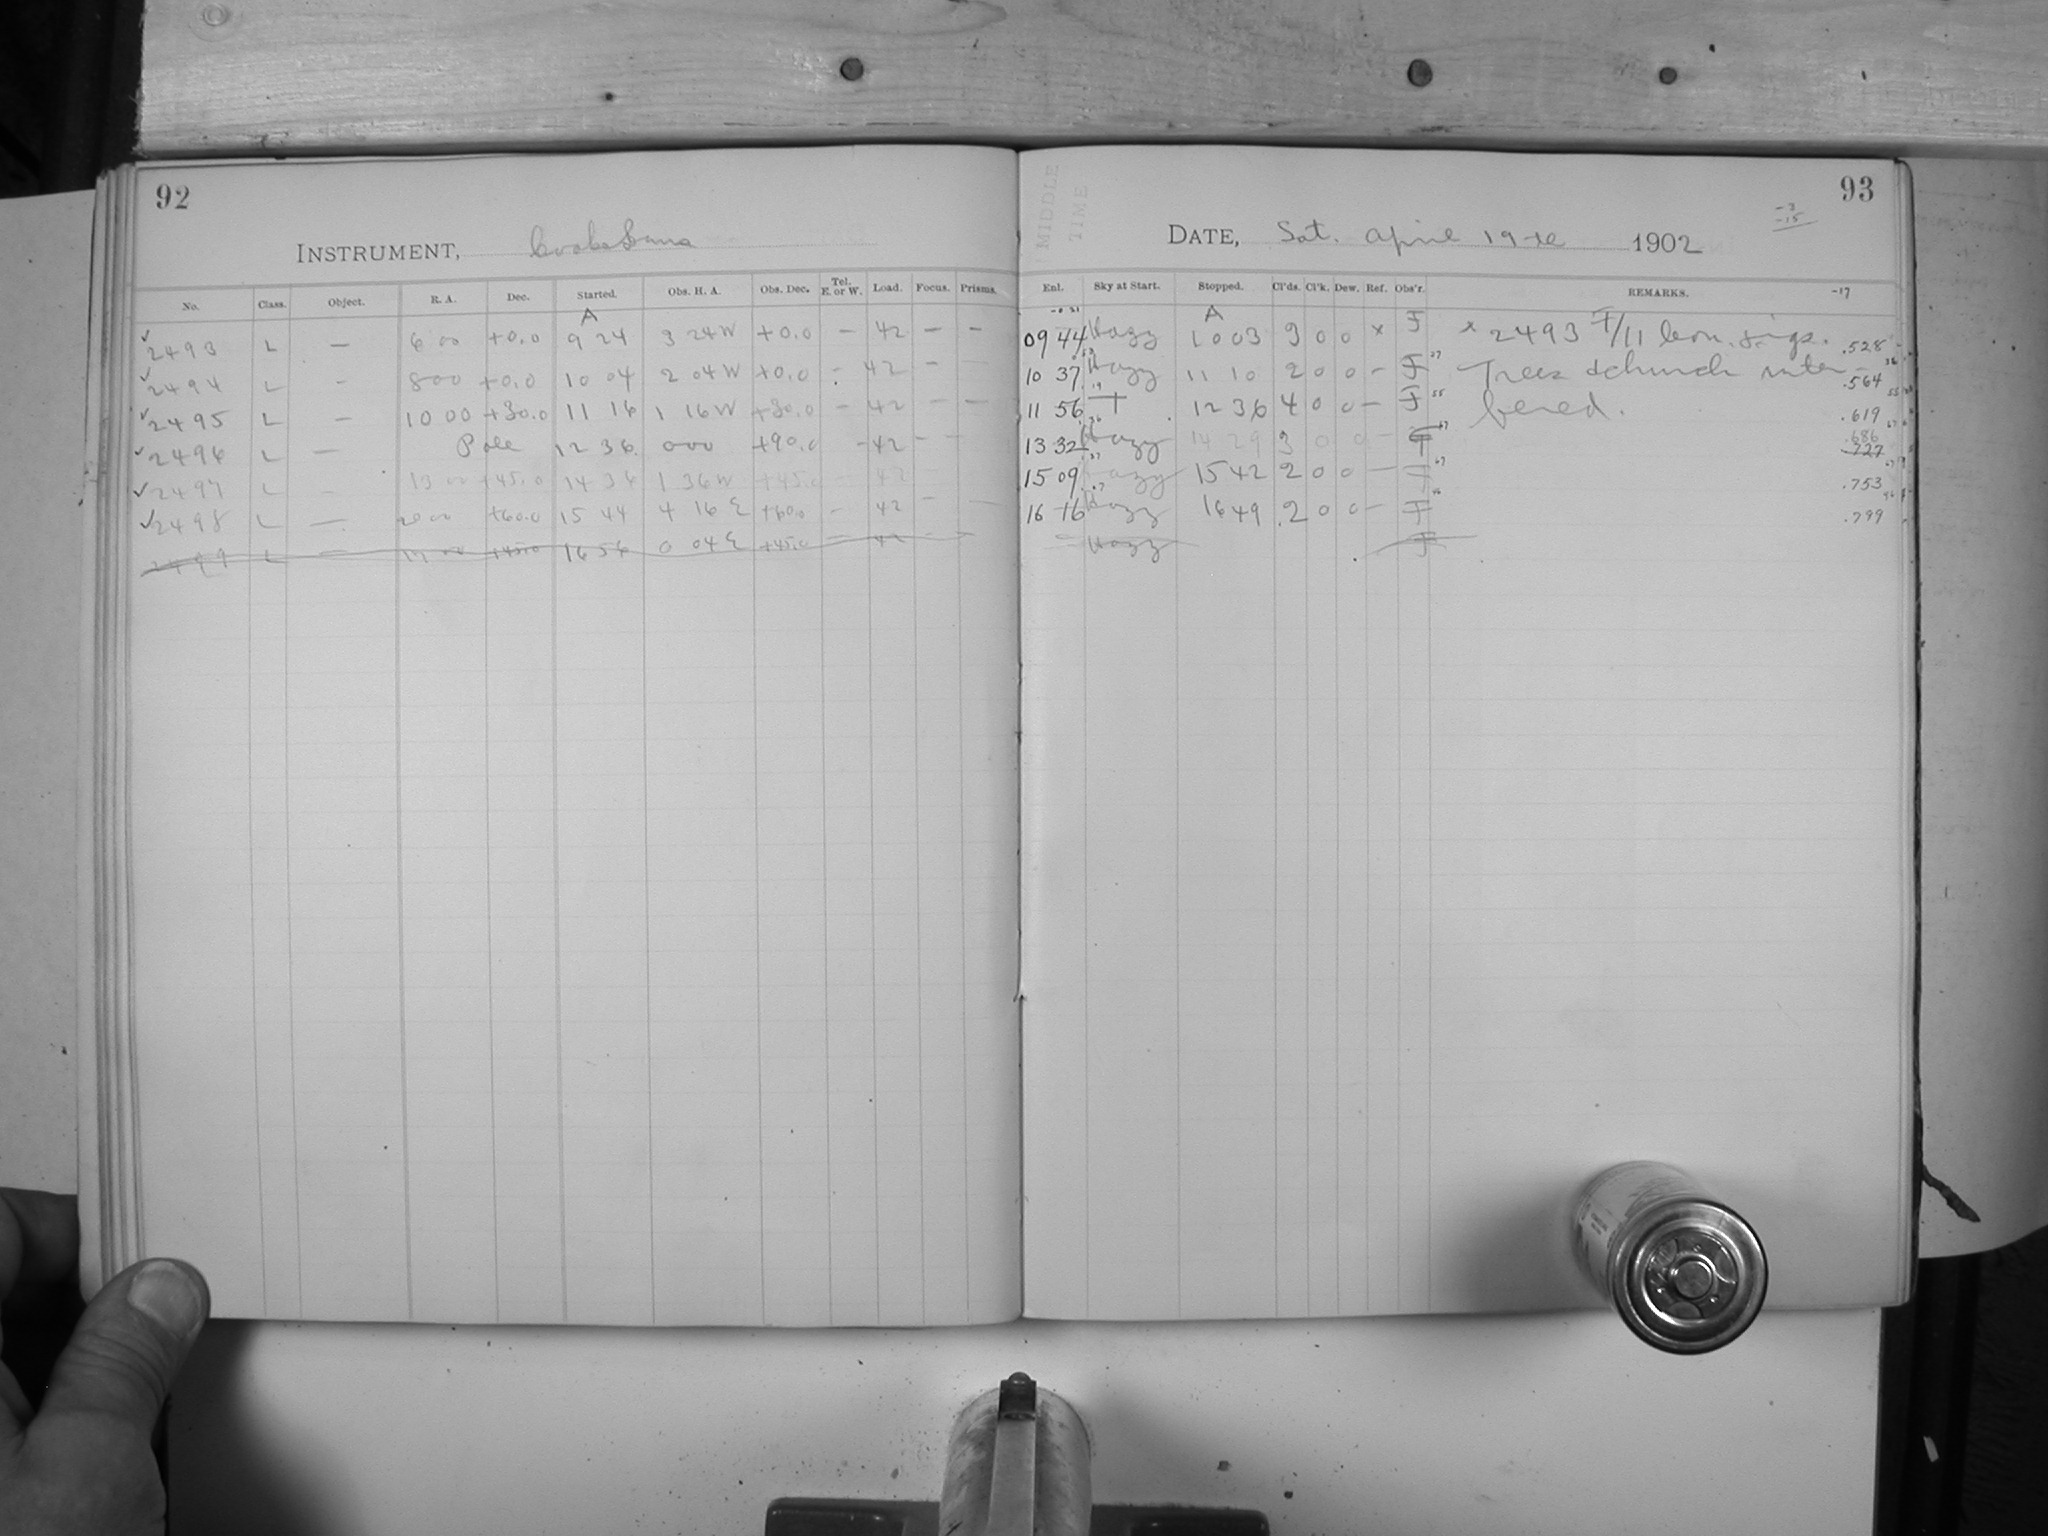 92
INSTRUMENT, Cooke Lens
No. Class. Object. R. A. Dec. Started. Obs. H. A. Obs. Dec. Tel. E. or W. Load. Focus. Prisms.
A
✓ 2493 L — 6 00 +0.0 9 24 3 24 W +0.0 — 42 — —
✓ 2494 L — 8 00 +0.0 10 04 2 04 W +0.0 - 42 — —
✓ 2495 L — 10 00 +30.0 11 16 1 16 W +30.0 — 42 — —
✓ 2496 L — Pole 12 36 0 00 +90.0 — 42 — —
✓ 2497 L — 13 00 +45.0 14 36 1 36 W +45.0 — 42 —
✓ 2498 L — 20 00 +60.0 15 44 4 16 E +60.0 — 42 — —
2499 L — 17 00 +45.0 16 56 0 04 E +45.0 — 42 — —
93
MIDDLE TIME
DATE, Sat. April 19th 1902
Enl. Sky at Start. Stopped. Cl'ds. Cl'k. Dew. Ref. Obs'r. REMARKS. -17
A
09 44 Hazy 10 03 3 0 0 x F x 2493 F/11 .528
10 37 Hazy 11 10 2 0 0 — F 27 Trees & church inter- .564
11 56 T 12 36 4 0 0 — F 55 fered. .619
13 32 Hazy 14 29 3 0 0 — F 67 .686
.727
15 09 Hazy 15 42 2 0 0 — F 67 .753
16 16 Hazy 16 49 2 0 0 — F 46 .799
— Hazy F